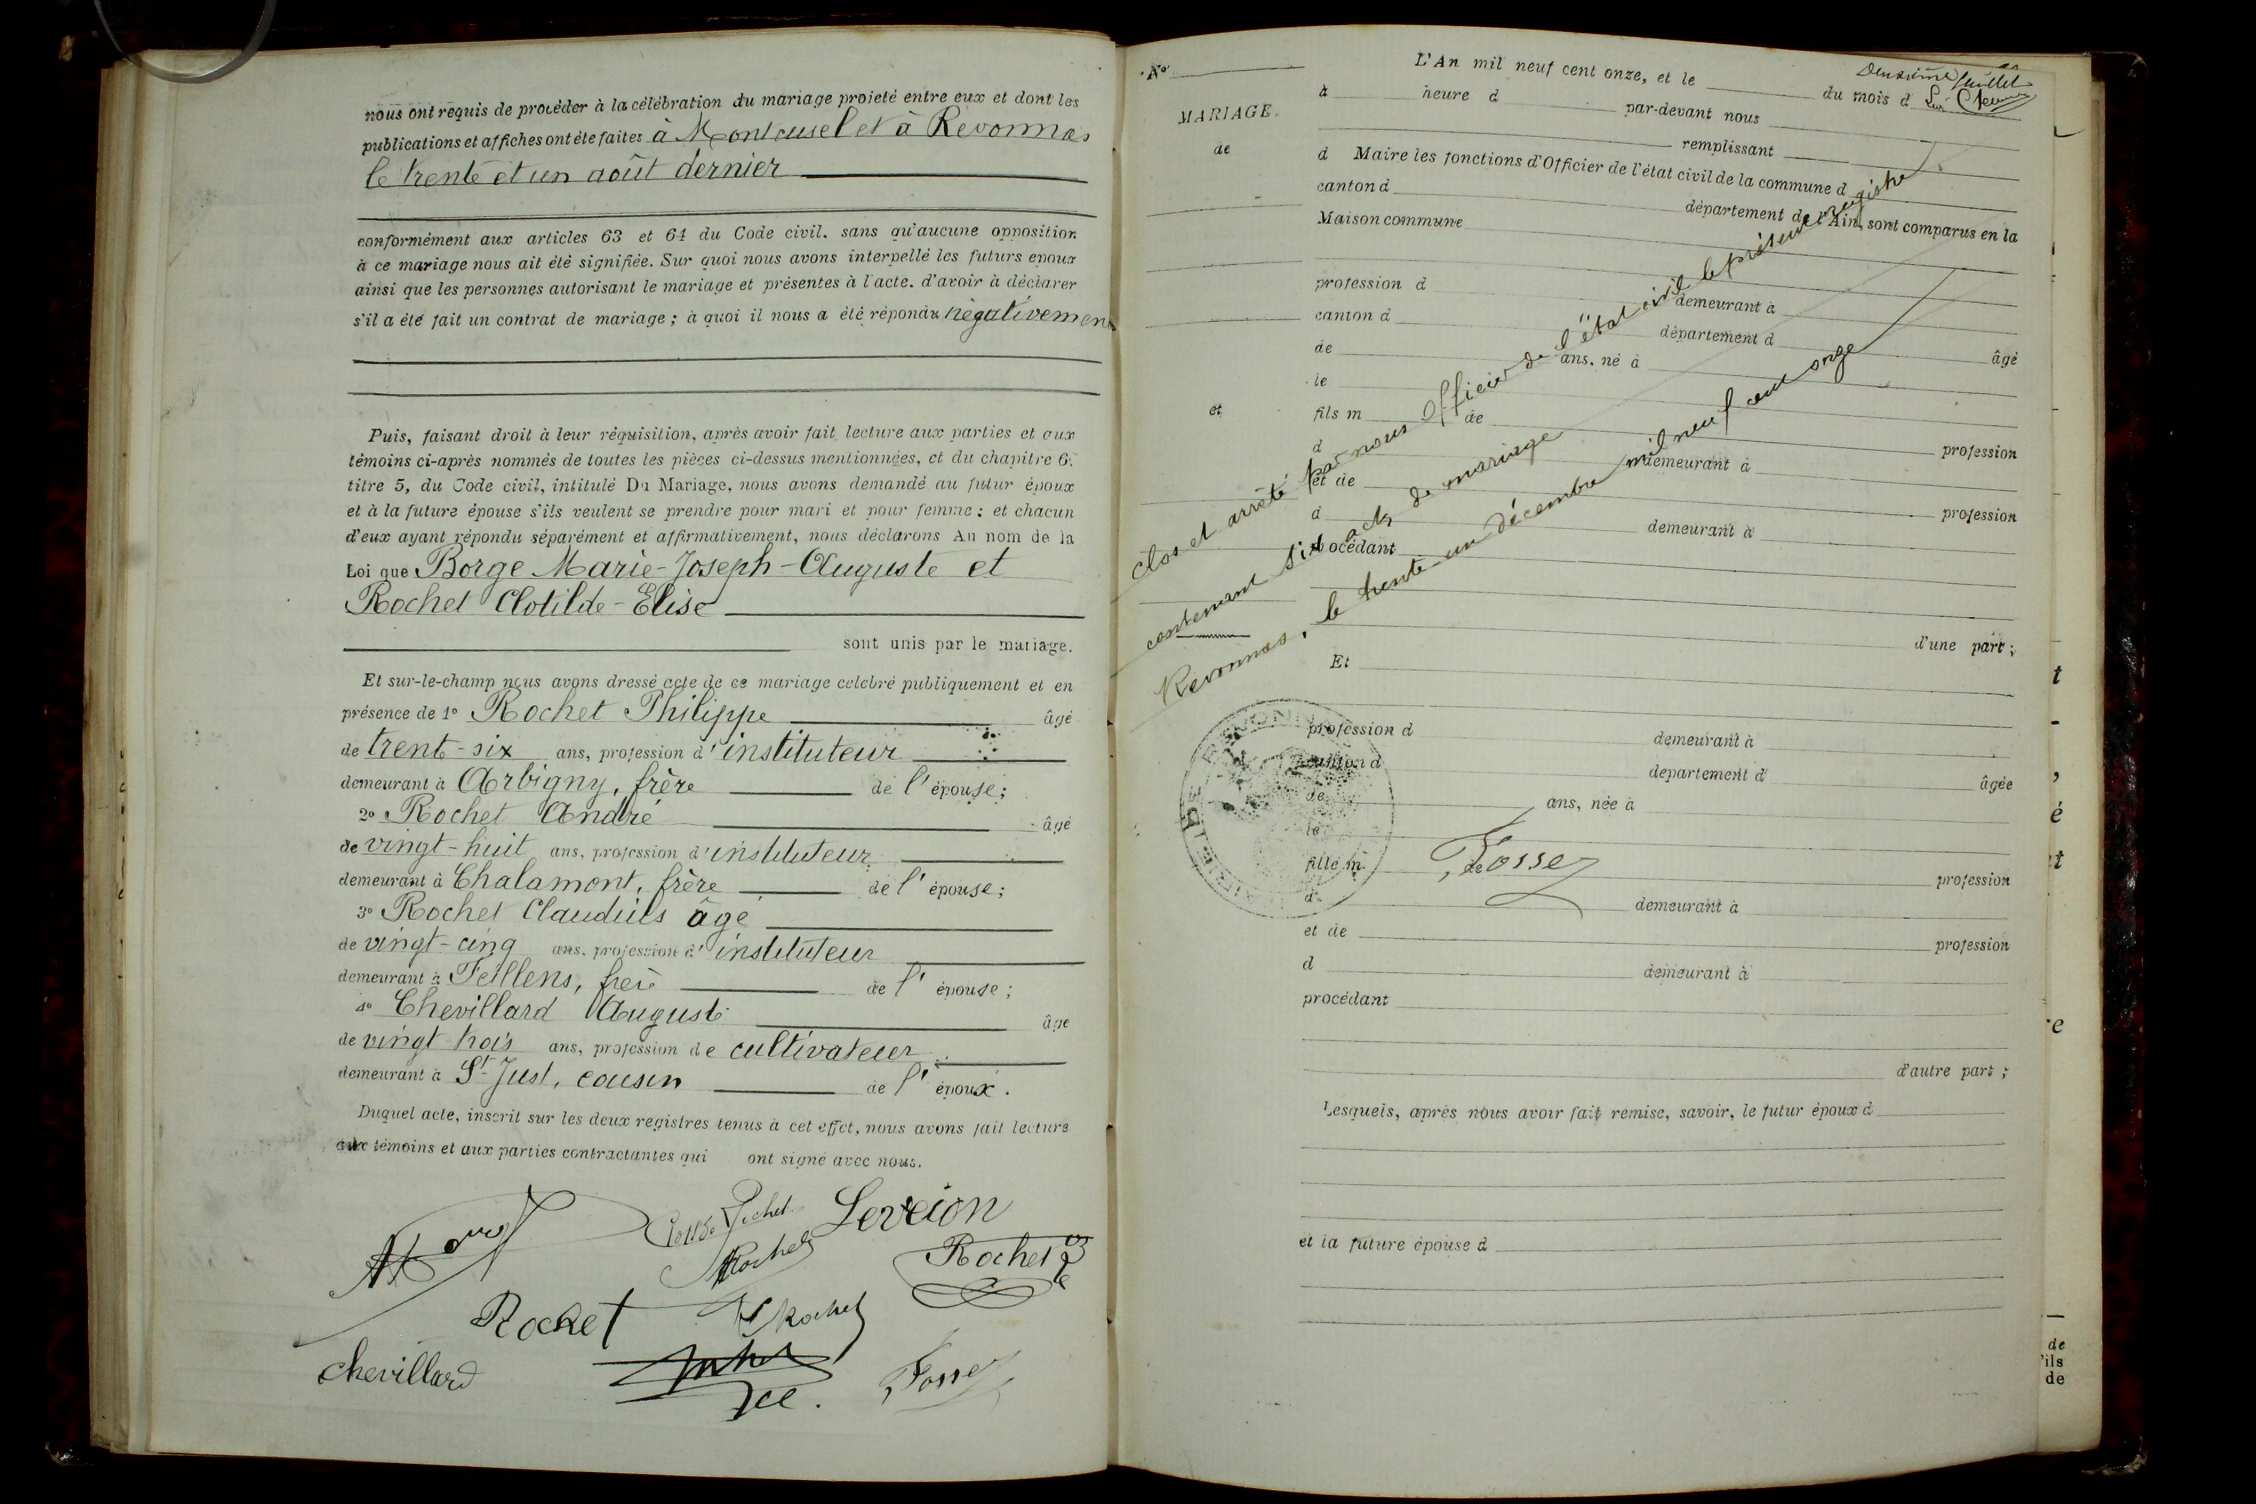 nous ont requis de procéder à la célébration du mariage projeté entre eux et dont les
publications et affiches ont été faites à Montcusel et à Revonnas
le trente et un août dernier
conformément aux articles 63 et 64 du Code civil. sans qu'aucune opposition
à ce mariage nous ait été signifiée. Sur quoi nous avons interpellé les futurs epoux
ainsi que les personnes autorisant le mariage et présentes à l'acte. d'avoir à déclarer
s'il a été fait un contrat de mariage ; à quoi il nous a été répondu négativement
Puis, faisant droit à leur réquisition, après avoir fait lecture aux parties et aux
témoins ci-après nommés de toutes les pièces ci-dessus mentionnées, et du chapitre 6.
titre 5, du Code civil, intitulé Du Mariage, nous avons demandé au futur époux
et à la future épouse s'ils veulent se prendre pour mari et pour femme : et chacun
d'eux ayant répondu séparément et affirmativement, nous déclarons Au nom de la
Loi que Borge Marie-Joseph-Auguste et
Rochet Clotilde-Elise
sont unis par le mariage.
Et sur-le-champ nous avons dressé acte de ce mariage celebré publiquement et en
présence de 1º Rochet Philippe âgé
de trent-six ans, profession d'instituteur
demeurant à Arbigny, frère de l'épouse ;
2º Rochet André âgé
de vingt-huit ans, profession d'instituteur
demeurant à Chalamont, frère de l'épouse ;
3º Rochet Claudius âgé
de vingt-cinq ans, profession d'instituteur
demeurant à Feillens, frère de l'épouse ;
4º Chevillard Auguste âgé
de vingt trois ans, profession de cultivateur
demeurant à St-Just, cousin de l'époux.
Duquel acte, inscrit sur les deux registres tenus à cet effet, nous avons fait lecture
aux témoins et aux parties contractantes qui ont signé avec nous.
Rochet Leveion
Rochet
Rochet
Rochet Rochet
Chevillard
Fossez
Nº
MARIAGE.
de
et
L'An mil neuf cent onze, et le du mois d
Deuxième feuillet
à heure d par-devant nous
remplissant
d Maire les fonctions d'Officier de l'état civil de la commune d
canton d département de l'Ain, sont comparus en la
Maison commune
profession d demeurant à
canton d département d âgé
de ans, né à
le
fils m de
d demeurant à profession
et de
d demeurant à profession
procédant
d'une part ;
Clos et arrêté par nous Officier de l'état civil le présent registre
contenant six actes de mariage
Revonnas, le trente un décembre mil neuf cent onze
Et
profession d demeurant à
canton d département d âgée
de ans, née à
le
fille m de profession
Fossez
d demeurant à
et de profession
d demeurant à
procédant
d'autre part ;
Lesquels, après nous avoir fait remise, savoir, le futur époux d
et la future épouse d
de
'ils
de